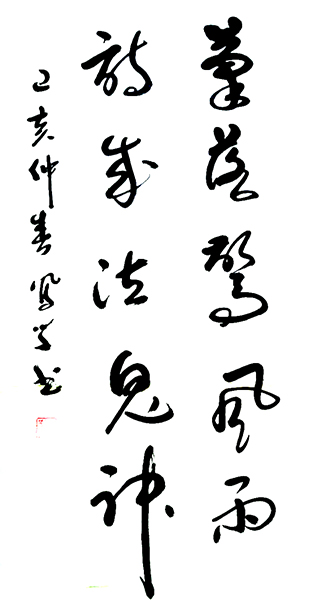 筆落驚風雨
詩成泣鬼神
己亥仲春鳳学书